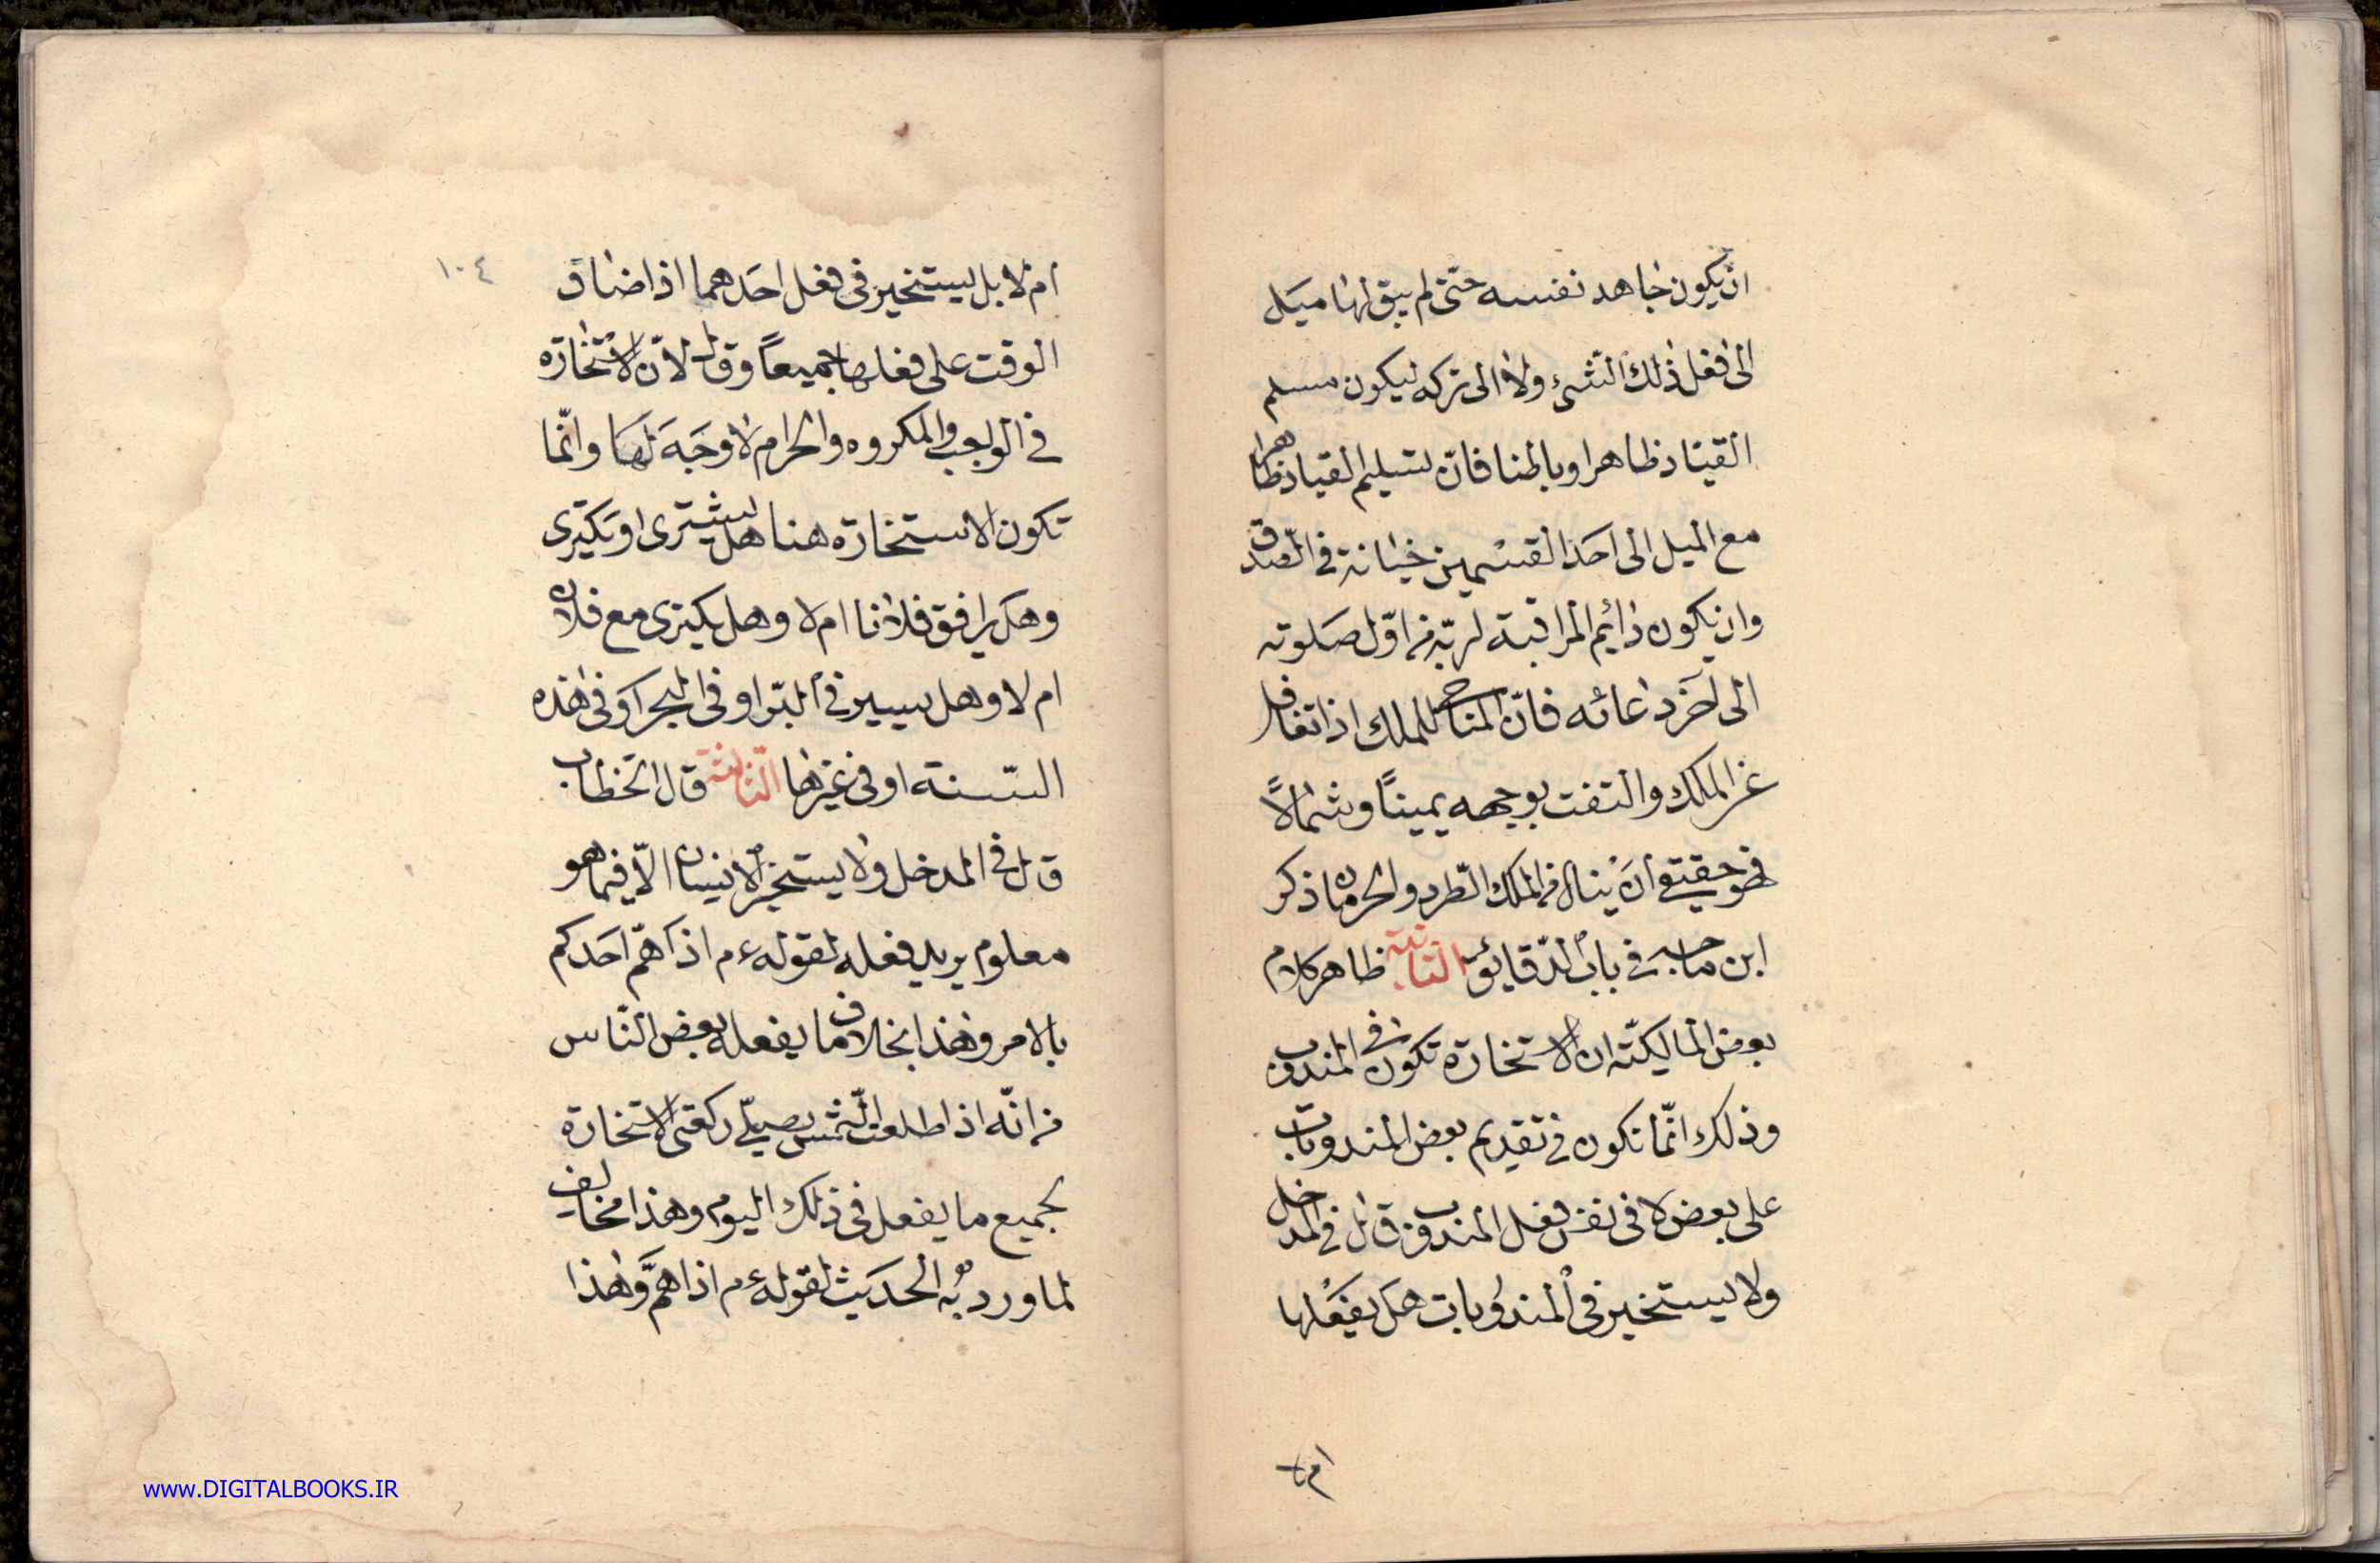 ان يكون جاهد نفسه حتّى لم يبق لها ميل
الى فعل ذلك الشّىء ولا الى تركه ليكون مسلم
القياد ظاهرا وباطنا فانّ تسليم القياد ظاهرا
مع الميل الى احد القسمين خيانة في الصّدق
وان يكون دائم المراقبة لربّه من اوّل صلوته
الى آخر دعائه فانّ المناجى للملك اذا تغافل
عن الملك والتفت بوجهه يمينًا وشمالًا
فهو حقيق أن ينال من الملك الطّرد والحرمان ذكر
ابن في باب الدّقايق الثانية ظاهر كلام
بعض المالكيّة ان الاستخارة تكون في المندوب
وذلك انّما تكون في تقديم بعض المندوبات
على بعض لا في نفس فعل المندوب قال في المدخل
ولا يستخير في المندوبات هل يفعلها
ام لا
١٠٤
ام لا بل يستخير في فعل احدهما اذا ضاق
الوقت على فعلها جميعاً وقال لانّ الاستخارة
في الواجب والمكروه والحرام لا وجه لها وانّما
تكون الاستخارة هنا هل يشترى او يكترى
وهل يرافق فلانا ام لا وهل يكترى مع فلان
ام لا وهل يسير في البرّ او في البحر او في هذه
السّنة او في غيرها الثالثة قال الخطاب
قال في المدخل ولا يستخير الانسان الّا فيما هو
معلوم يريد فعله لقوله ءم اذا همّ احدكم
بالامر وهذا بخلاف ما يفعله بعض النّاس
من انّه اذا طلعت الشّمس يصلّى ركعتى الاستخارة
لجميع ما يفعل في ذلك اليوم وهذا مخالف
لما ورد به الحديث لقوله ءم اذا همّ وهذا
www.DIGITALBOOKS.IR